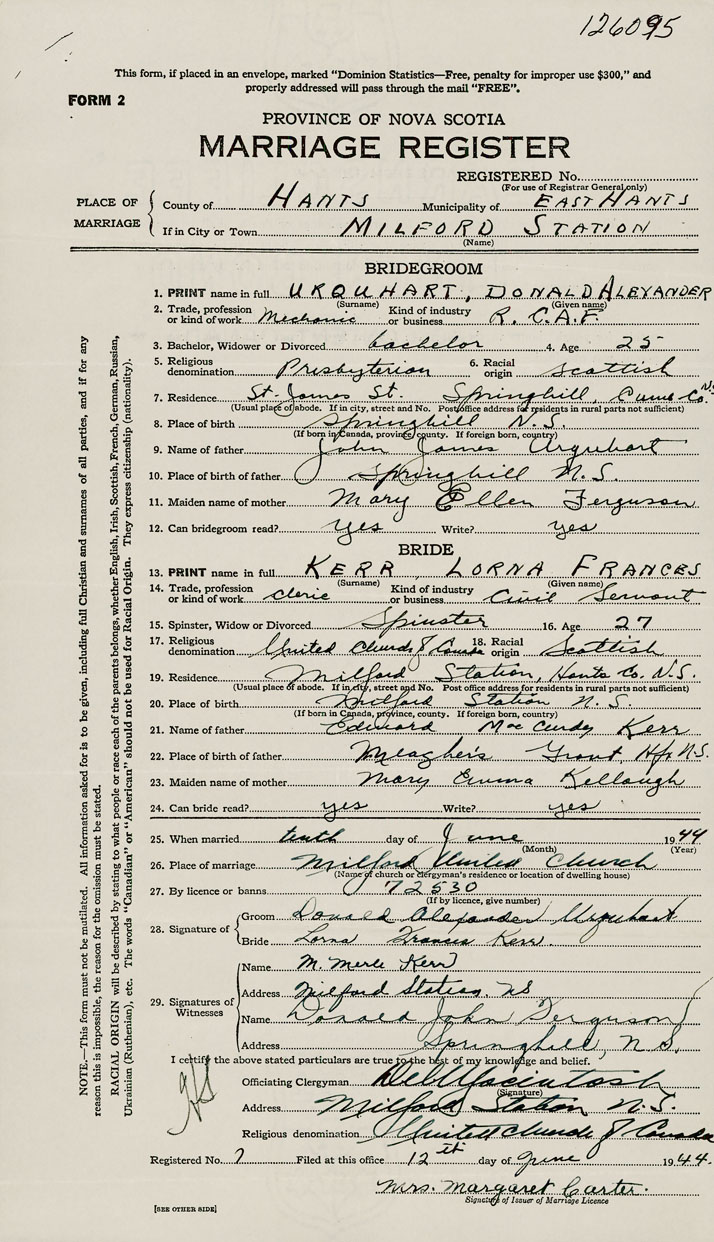 126095
This form, if placed in an envelope, marked "Dominion Statistics—Free, penalty for improper use $300," and
properly addressed will pass through the mail "FREE".
FORM 2
PROVINCE OF NOVA SCOTIA
MARRIAGE REGISTER
REGISTERED No.
(For use of Registrar General only)
PLACE OF MARRIAGE
County of HANTS Municipality of EAST HANTS
If in City or Town MILFORD STATION
(Name)
BRIDEGROOM
1. PRINT name in full URQUHART, DONALD ALEXANDER
(Surname) (Given name)
2. Trade, profession or kind of work Mechanic Kind of industry or business R.C.A.F.
3. Bachelor, Widower or Divorced bachelor 4. Age 25
5. Religious denomination Presbyterian 6. Racial origin Scottish
7. Residence St. James St. Springhill, Cumb Co. N.S.
(Usual place of abode. If in city, street and No. Post office address for residents in rural parts not sufficient)
8. Place of birth Springhill N.S.
(If born in Canada, province, county. If foreign born, country)
9. Name of father John James Urquhart
10. Place of birth of father Springhill N.S.
11. Maiden name of mother Mary Ellen Ferguson
12. Can bridegroom read? yes Write? yes
BRIDE
13. PRINT name in full KERR, LORNA FRANCES
(Surname) (Given name)
14. Trade, profession or kind of work cleric Kind of industry or business Civil Servant
15. Spinster, Widow or Divorced Spinster 16. Age 27
17. Religious denomination United Church of Canada 18. Racial origin Scottish
19. Residence Milford Station, Hants Co. N.S.
(Usual place of abode. If in city, street and No. Post office address for residents in rural parts not sufficient)
20. Place of birth Milford Station N.S.
(If born in Canada, province, county. If foreign born, country)
21. Name of father Edward MacCurdy Kerr
22. Place of birth of father Meagher's Grant, Hfx N.S.
23. Maiden name of mother Mary Emma Kellough
24. Can bride read? yes Write? yes
25. When married tenth day of June 1944
(Month) (Year)
26. Place of marriage Milford United Church
(Name of church or clergyman's residence or location of dwelling house)
27. By licence or banns 72530
(If by licence, give number)
28. Signature of
Groom Donald Alexander Urquhart
Bride Lorna Frances Kerr.
29. Signatures of Witnesses
Name M. Merle Kerr
Address Milford Station, NS
Name Donald John Ferguson
Address Springhill, N.S.
I certify the above stated particulars are true to the best of my knowledge and belief.
Officiating Clergyman Macintosh
(Signature)
Address Milford Station N.S.
Religious denomination United Church of Canada
Registered No. 7 Filed at this office 12th day of June 1944.
Mrs. Margaret Carter.
Signature of Issuer of Marriage Licence
[SEE OTHER SIDE]
NOTE.—This form must not be mutilated. All information asked for is to be given, including full Christian and surnames of all parties, and if for any
reason this is impossible, the reason for the omission must be stated.
RACIAL ORIGIN will be described by stating to what people or race each of the parents belongs, whether English, Irish, Scottish, French, German, Russian,
Ukrainian (Ruthenian), etc. The words "Canadian" or "American" should not be used for Racial Origin. They express citizenship (nationality).